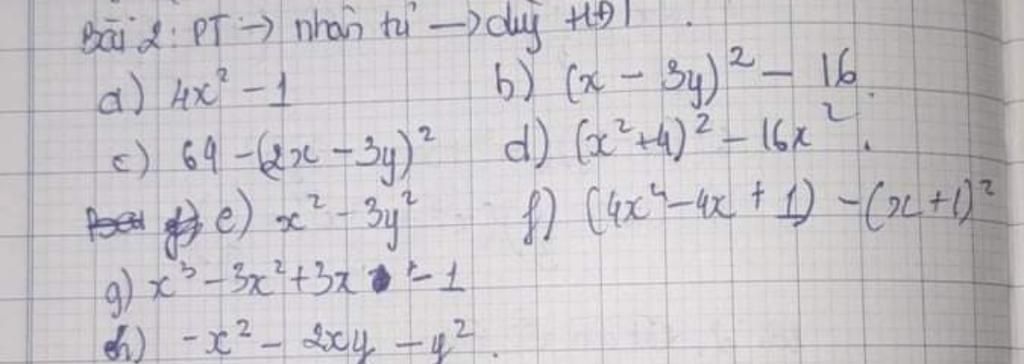 Bài 2: PT → nhân tử → dùg HĐT.
a) 4x² - 1 b) (x - 3y)² - 16.
c) 64 - (2x - 3y)² d) (x² + 4)² - 16x².
e) x² - 3y² f) (4x² - 4x + 1) - (x + 1)²
g) x³ - 3x² + 3x - 1
h) -x² - 2xy - y².